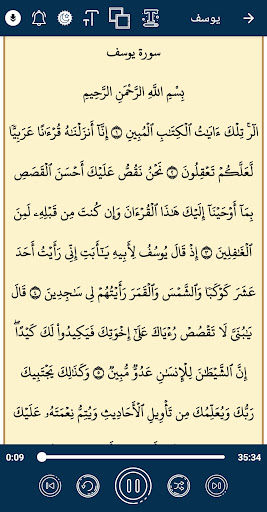 يوسف
سورة يوسف
بِسْمِ اللَّهِ الرَّحْمَنِ الرَّحِيمِ
الٓرۚ تِلْكَ ءَايَٰتُ ٱلْكِتَٰبِ ٱلْمُبِينِ ١ إِنَّآ أَنزَلْنَٰهُ قُرْءَٰنًا عَرَبِيًّا
لَّعَلَّكُمْ تَعْقِلُونَ ٢ نَحْنُ نَقُصُّ عَلَيْكَ أَحْسَنَ ٱلْقَصَصِ
بِمَآ أَوْحَيْنَآ إِلَيْكَ هَٰذَا ٱلْقُرْءَانَ وَإِن كُنتَ مِن قَبْلِهِۦ لَمِنَ
ٱلْغَٰفِلِينَ ٣ إِذْ قَالَ يُوسُفُ لِأَبِيهِ يَٰٓأَبَتِ إِنِّي رَأَيْتُ أَحَدَ
عَشَرَ كَوْكَبًا وَٱلشَّمْسَ وَٱلْقَمَرَ رَأَيْتُهُمْ لِي سَٰجِدِينَ ٤ قَالَ
يَٰبُنَيَّ لَا تَقْصُصْ رُءْيَاكَ عَلَىٰٓ إِخْوَتِكَ فَيَكِيدُوا۟ لَكَ كَيْدًاۖ
إِنَّ ٱلشَّيْطَٰنَ لِلْإِنسَٰنِ عَدُوٌّ مُّبِينٌ ٥ وَكَذَٰلِكَ يَجْتَبِيكَ
رَبُّكَ وَيُعَلِّمُكَ مِن تَأْوِيلِ ٱلْأَحَادِيثِ وَيُتِمُّ نِعْمَتَهُۥ عَلَيْكَ
0:09 35:34